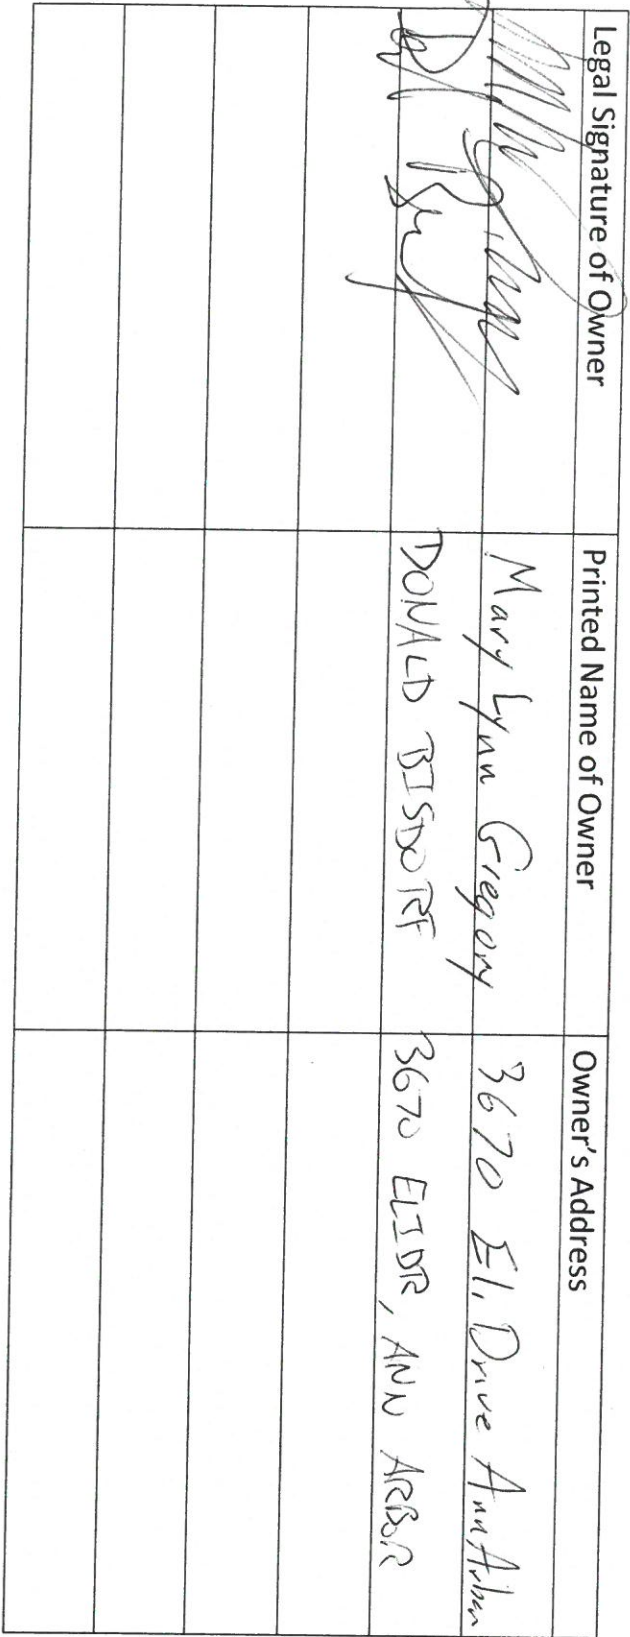 Legal Signature of Owner Printed Name of Owner Owner's Address
Mary Lynn Gregory 3670 Eli Drive Ann Arbor
DONALD BISDORF 3670 ELI DR, ANN ARBOR